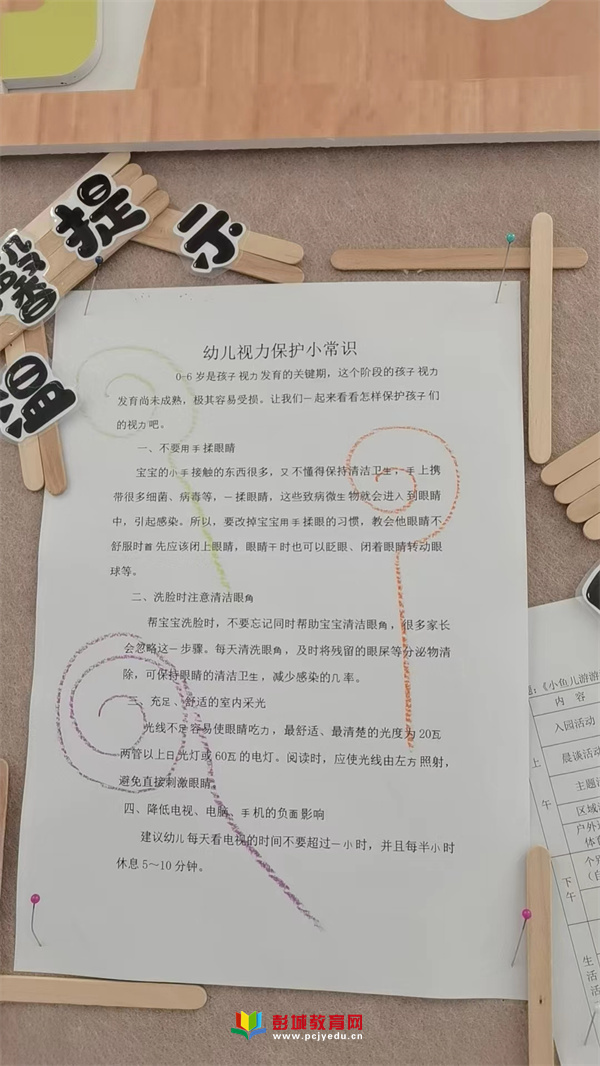 温馨提示
幼儿视力保护小常识
0-6岁是孩子视力发育的关键期，这个阶段的孩子视力
发育尚未成熟，极其容易受损。让我们一起来看看怎样保护孩子们
的视力吧。
一、不要用手揉眼睛
宝宝的小手接触的东西很多，又不懂得保持清洁卫生，手上携
带很多细菌、病毒等，一揉眼睛，这些致病微生物就会进入到眼睛
中，引起感染。所以，要改掉宝宝用手揉眼的习惯，教会他眼睛不
舒服时首先应该闭上眼睛，眼睛干时也可以眨眼、闭着眼睛转动眼
球等。
二、洗脸时注意清洁眼角
帮宝宝洗脸时，不要忘记同时帮助宝宝清洁眼角，很多家长
会忽略这一步骤。每天清洗眼角，及时将残留的眼屎等分泌物清
除，可保持眼睛的清洁卫生，减少感染的几率。
三、充足、舒适的室内采光
光线不足容易使眼睛吃力，最舒适、最清楚的光度为20瓦
两管以上日光灯或60瓦的电灯。阅读时，应使光线由左方照射，
避免直接刺激眼睛。
四、降低电视、电脑、手机的负面影响
建议幼儿每天看电视的时间不要超过一小时，并且每半小时
休息5～10分钟。
题：《小鱼儿游游
内 容
入园活动
上午
晨谈活动
主题活
区域活
户外
体
下午
个别
（自
生活活
彭城教育网
www.pcjyedu.cn